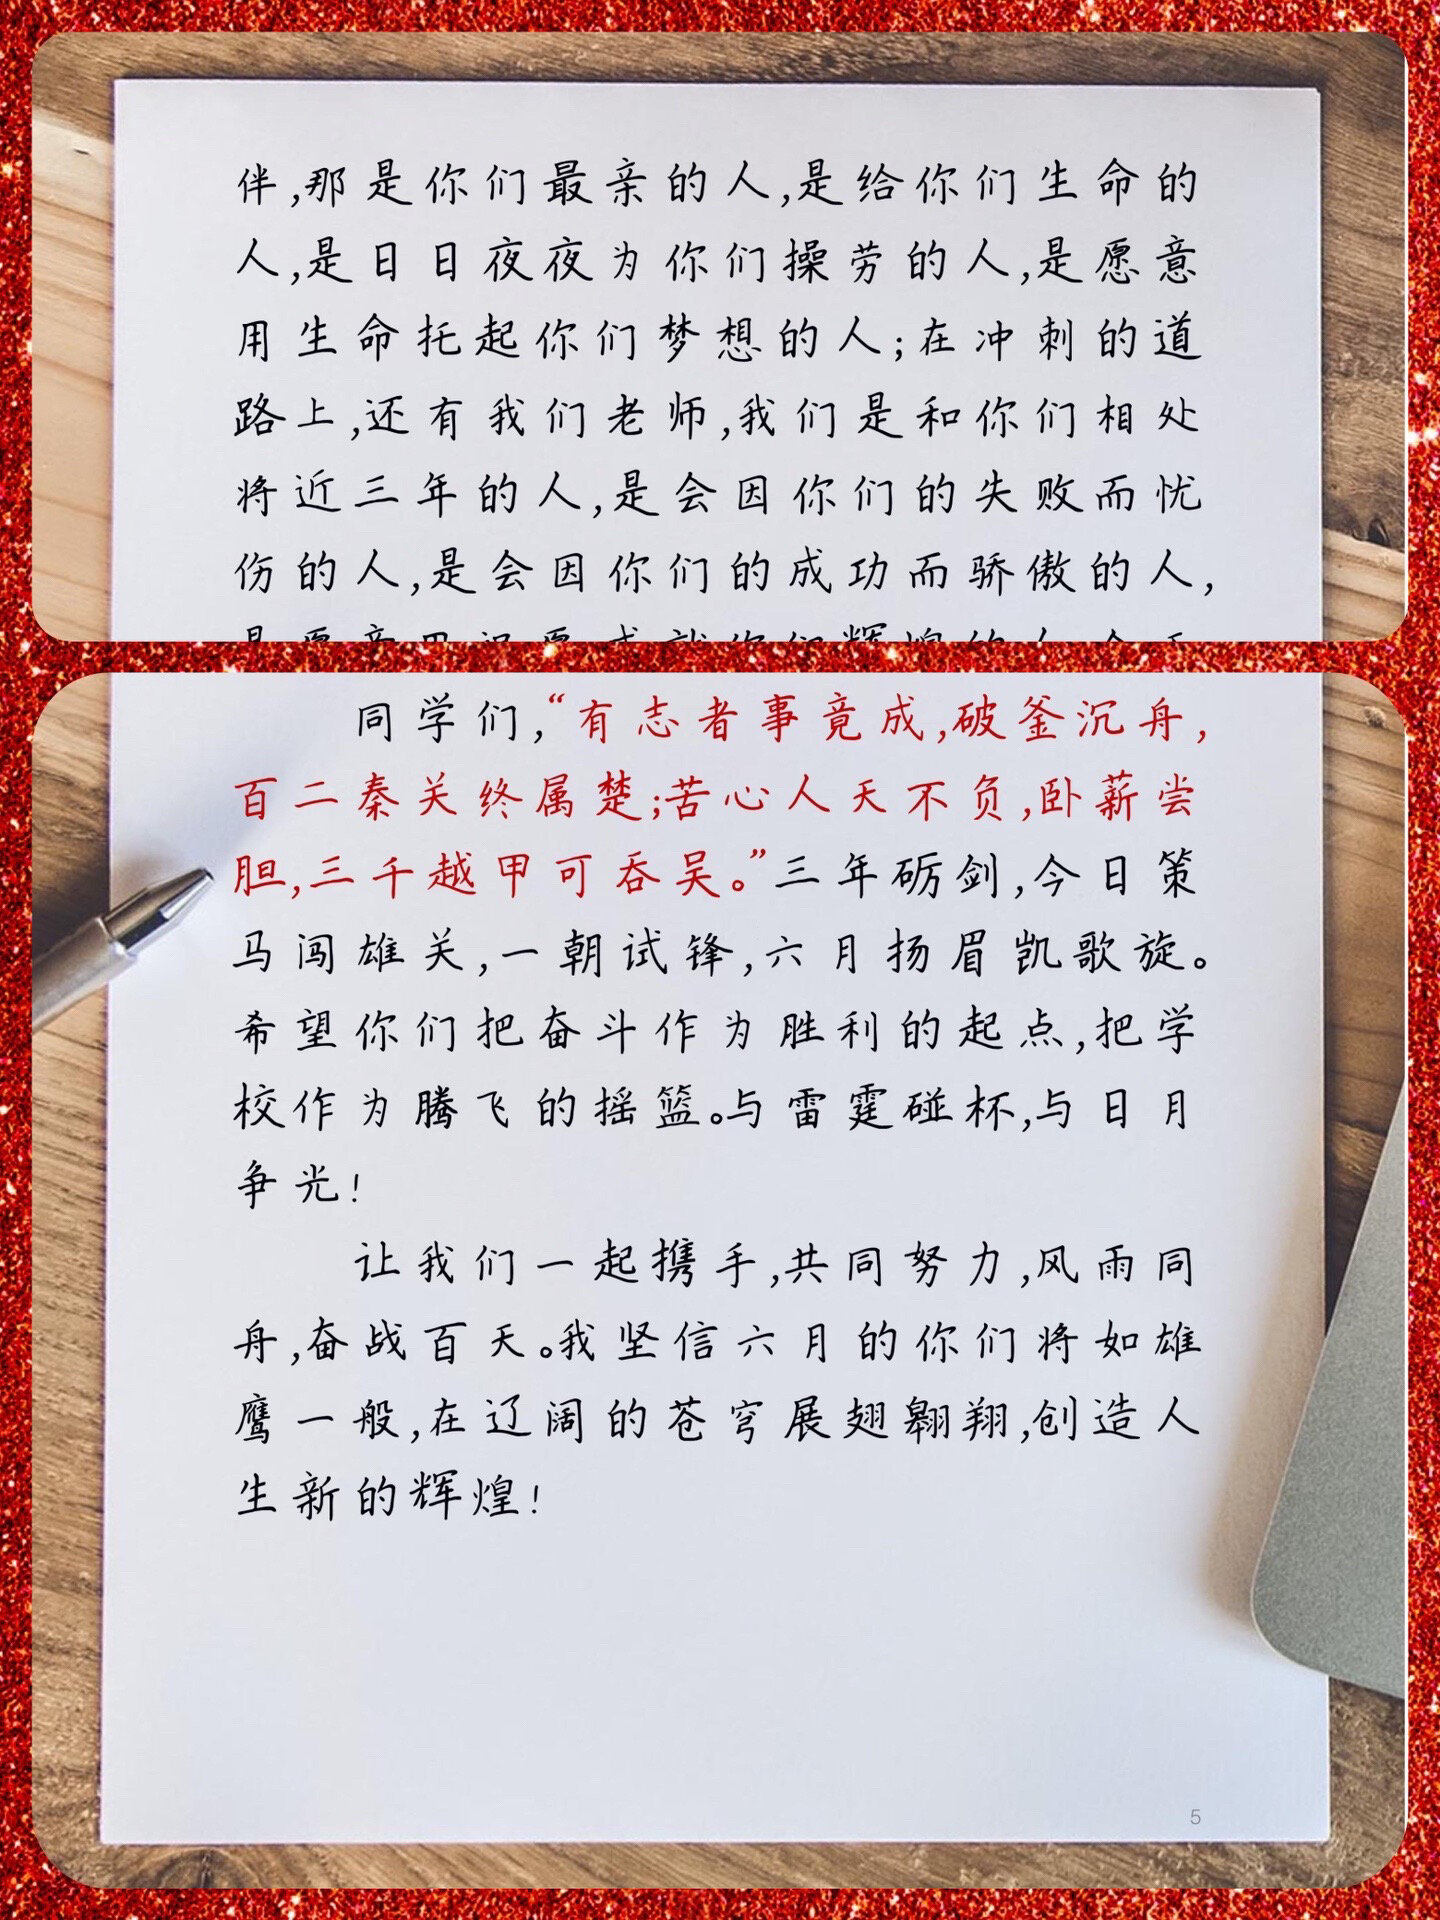 伴,那是你们最亲的人,是给你们生命的
人,是日日夜夜为你们操劳的人,是愿意
用生命托起你们梦想的人;在冲刺的道
路上,还有我们老师,我们是和你们相处
将近三年的人,是会因你们的失败而忧
伤的人,是会因你们的成功而骄傲的人,
同学们,“有志者事竟成,破釜沉舟,
百二秦关终属楚;苦心人天不负,卧薪尝
胆,三千越甲可吞吴。”三年砺剑,今日策
马闯雄关,一朝试锋,六月扬眉凯歌旋。
希望你们把奋斗作为胜利的起点,把学
校作为腾飞的摇篮。与雷霆碰杯,与日月
争光!
让我们一起携手,共同努力,风雨同
舟,奋战百天。我坚信六月的你们将如雄
鹰一般,在辽阔的苍穹展翅翱翔,创造人
生新的辉煌!
5